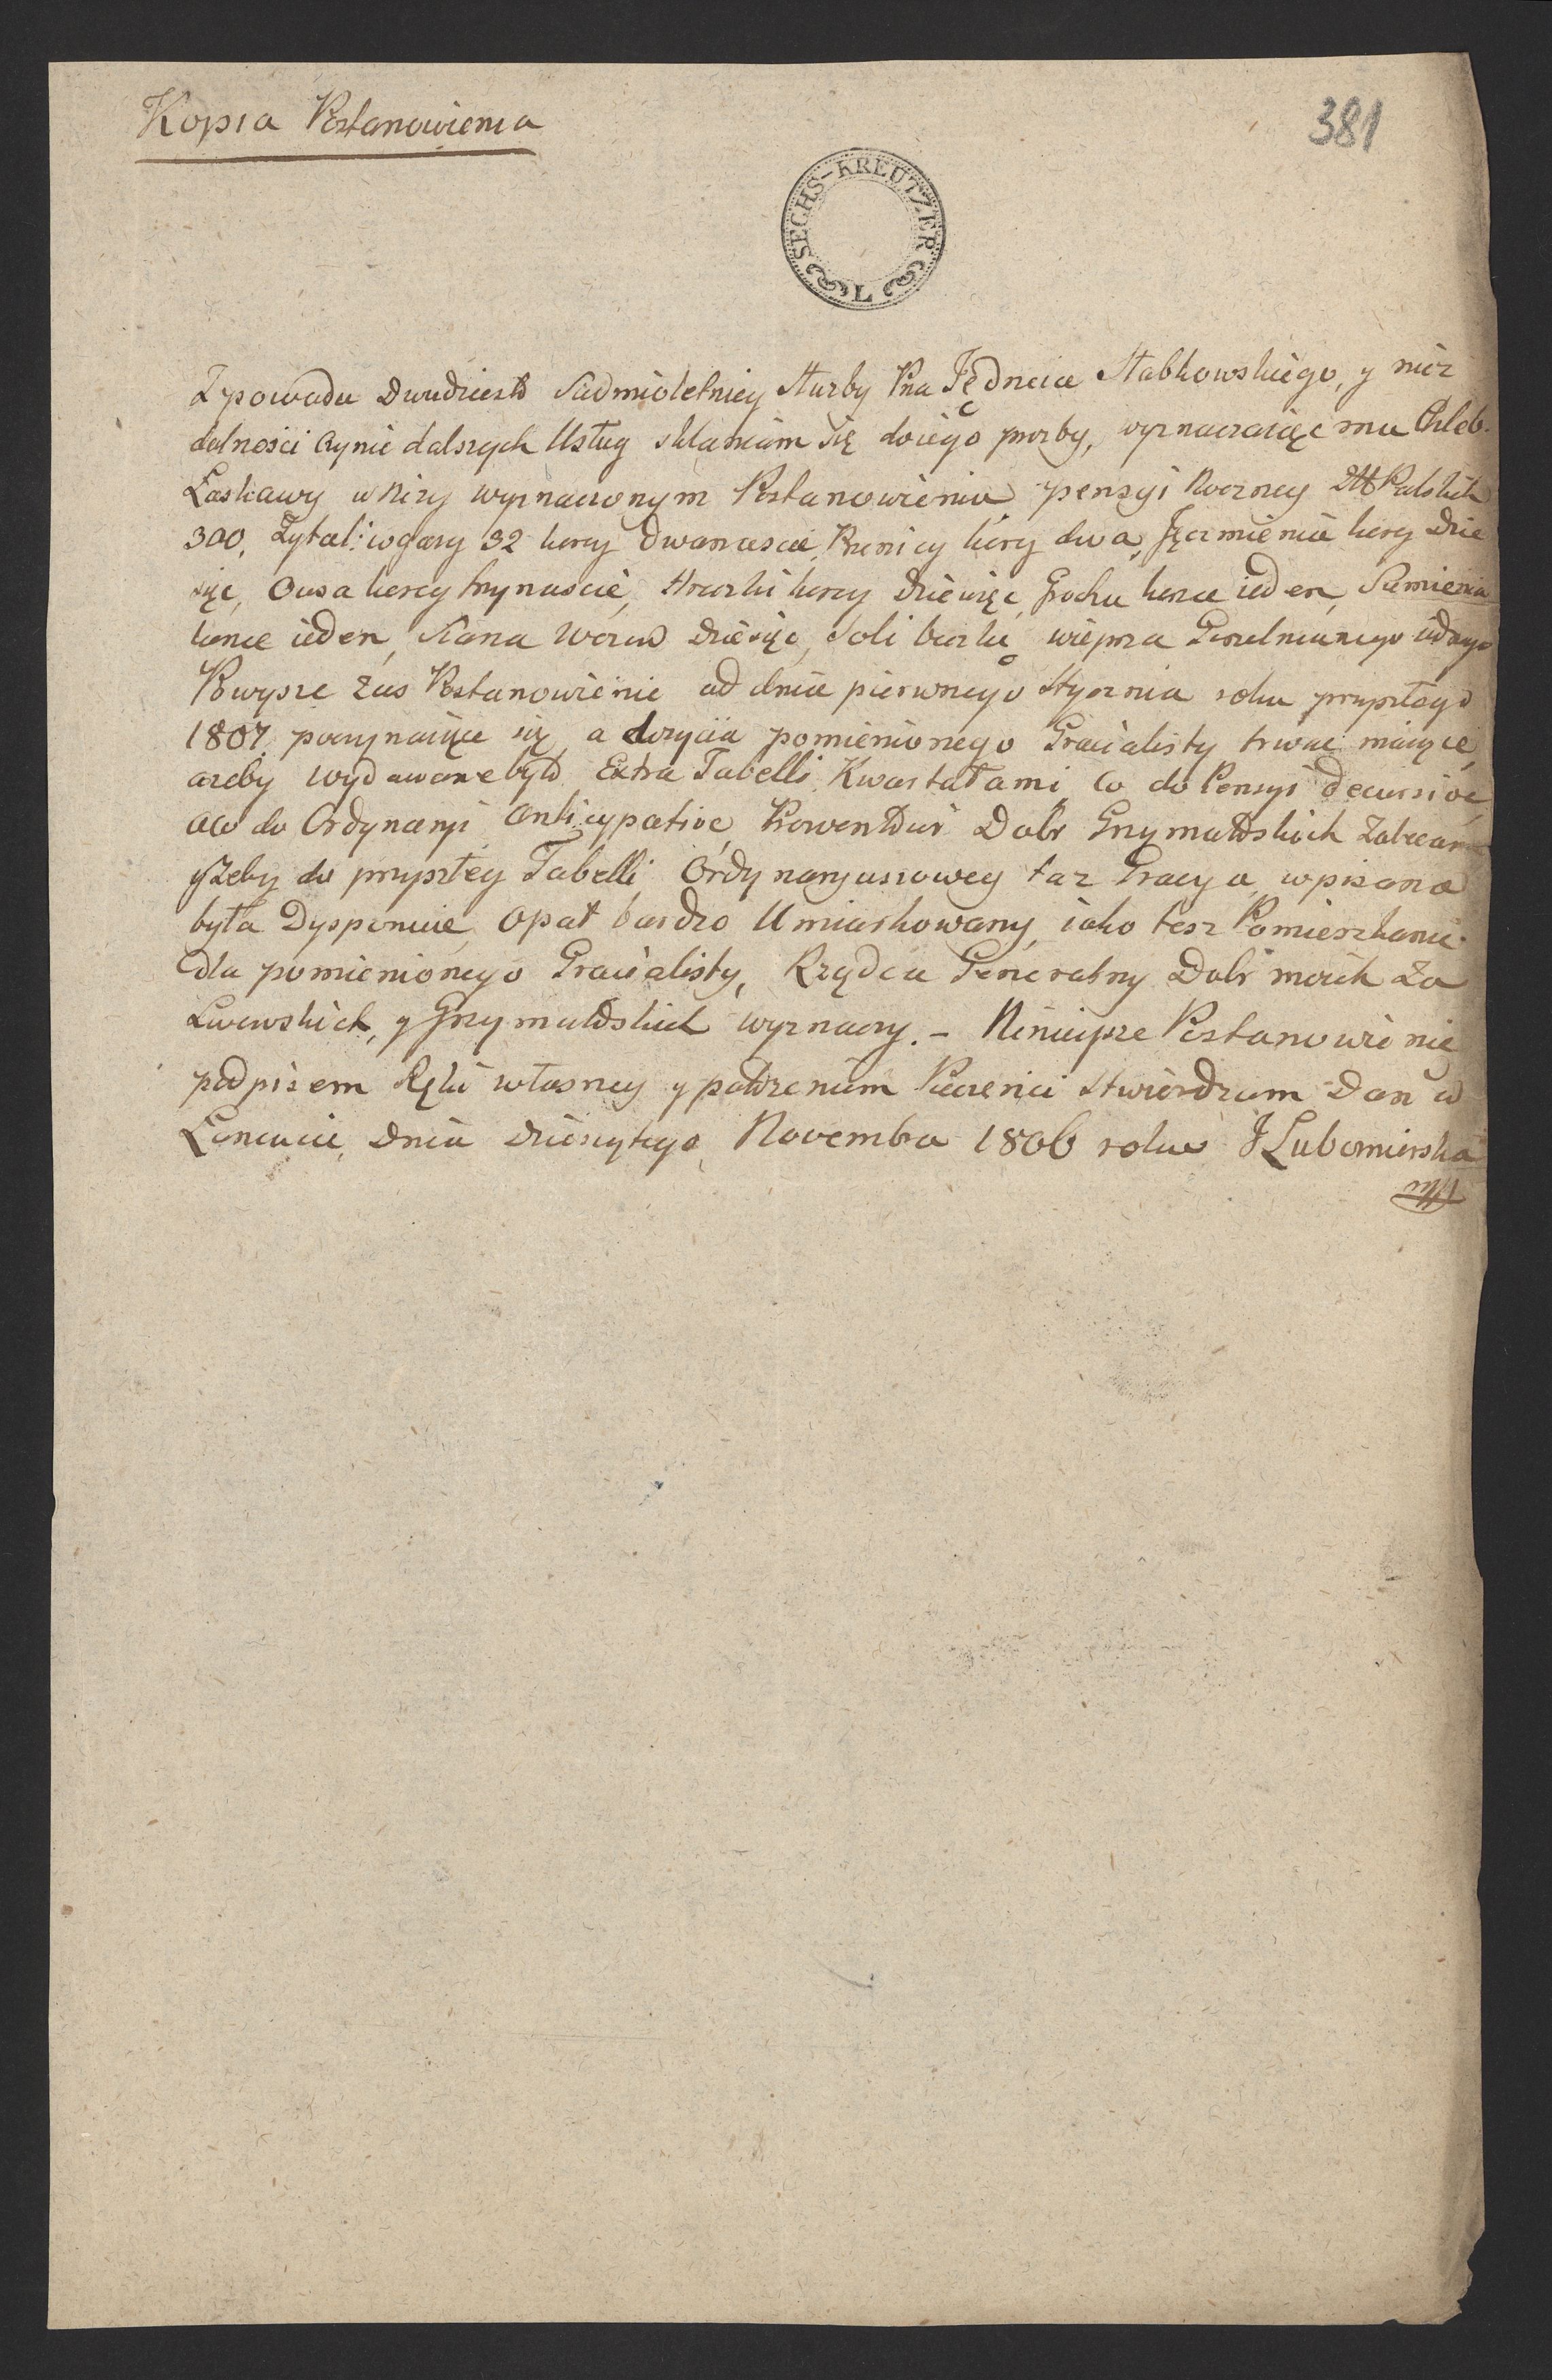 Kopia Postanowienia
381
SECHS-KREUTZER
L
Z powodu Dwudziesto Siedmioletniey Służby Pna Jędrzeia Słabkowskiego, y nierz
dalności czynie dalszych Usług skłaniam się do iego prozby, wyznaczaiąc mu Chleb
Łaskawy w Niży wyznaczonym Postanowieniu, pensyi Roczney Zł Polskich
300, Żyta l: w gary 32 korcy Dwanascie, Przenicy korcy dwa, Jęczmienia korcy Dzie
sięc, Owsa korcy trzynascie, Hreczki korcy Dziewięc Grochu korzec ieden, Siemienia
korzec ieden, Siana Wozow Dziesięc, Soli beczkę wieprza Gorzelnianego iednego
Powysze zas Postanowienie od dnia pierwszego Stycznia roku przyszłego
1807, poczynaiące się, a dozycia pomienionego Gracialisty trwac maiące,
azeby wydawane było Extra Tabelli, Kwartałami, Co do Pensyi decursive
a co do Ordynaryi Anticypative, Prowentów Dobr Grzymałoskich Zalecam
y Zeby do przyszłey Tabelli Ordynaryusiowey taz Gracya wpisana
była Dysponuie, Opał bardzo Umiarkowany, iako tesz Pomieszkanie
dla pomienionego Gracialisty, Rządca Generalny Dobr moich Za
Lwowskich, y Grzymałoskich wyznaczy. – Ninieysze Postanowienie
podpisem Ręki własney y połozeniem Pieczenci Stwierdzam Dan w
Łancucie, Dnia Dziesiątego, Novembra 1806 roku J Lubomirska
mp